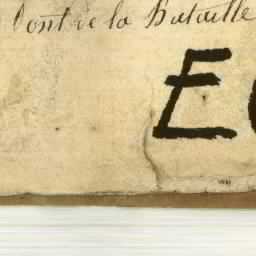 Pont de la Bataille
E